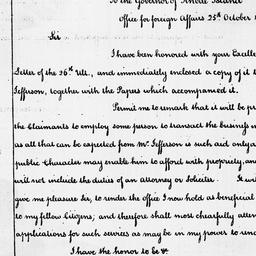 To the Governor of Rhode Island
Office for foreign Affairs 25th October
Sir
I have been honored with your Excelle
Letter of the 26th Ult., and immediately enclosed a copy of it t
Jefferson, together with the Papers which accompanied it.
Permit me to remark that it will be pr
the Claimants to employ some person to transact the business w
as all that can be expected from Mr. Jefferson is such aid only a
public Character may enable him to afford with propriety, an
will not include the duties of an attorney or Soliciter. It w
give me pleasure Sir, to render the office I now hold as beneficial
to my fellow Citizens; and therefor shall most chearfully atten
applications for such services as may be in my power to rend
I have the honor to be &